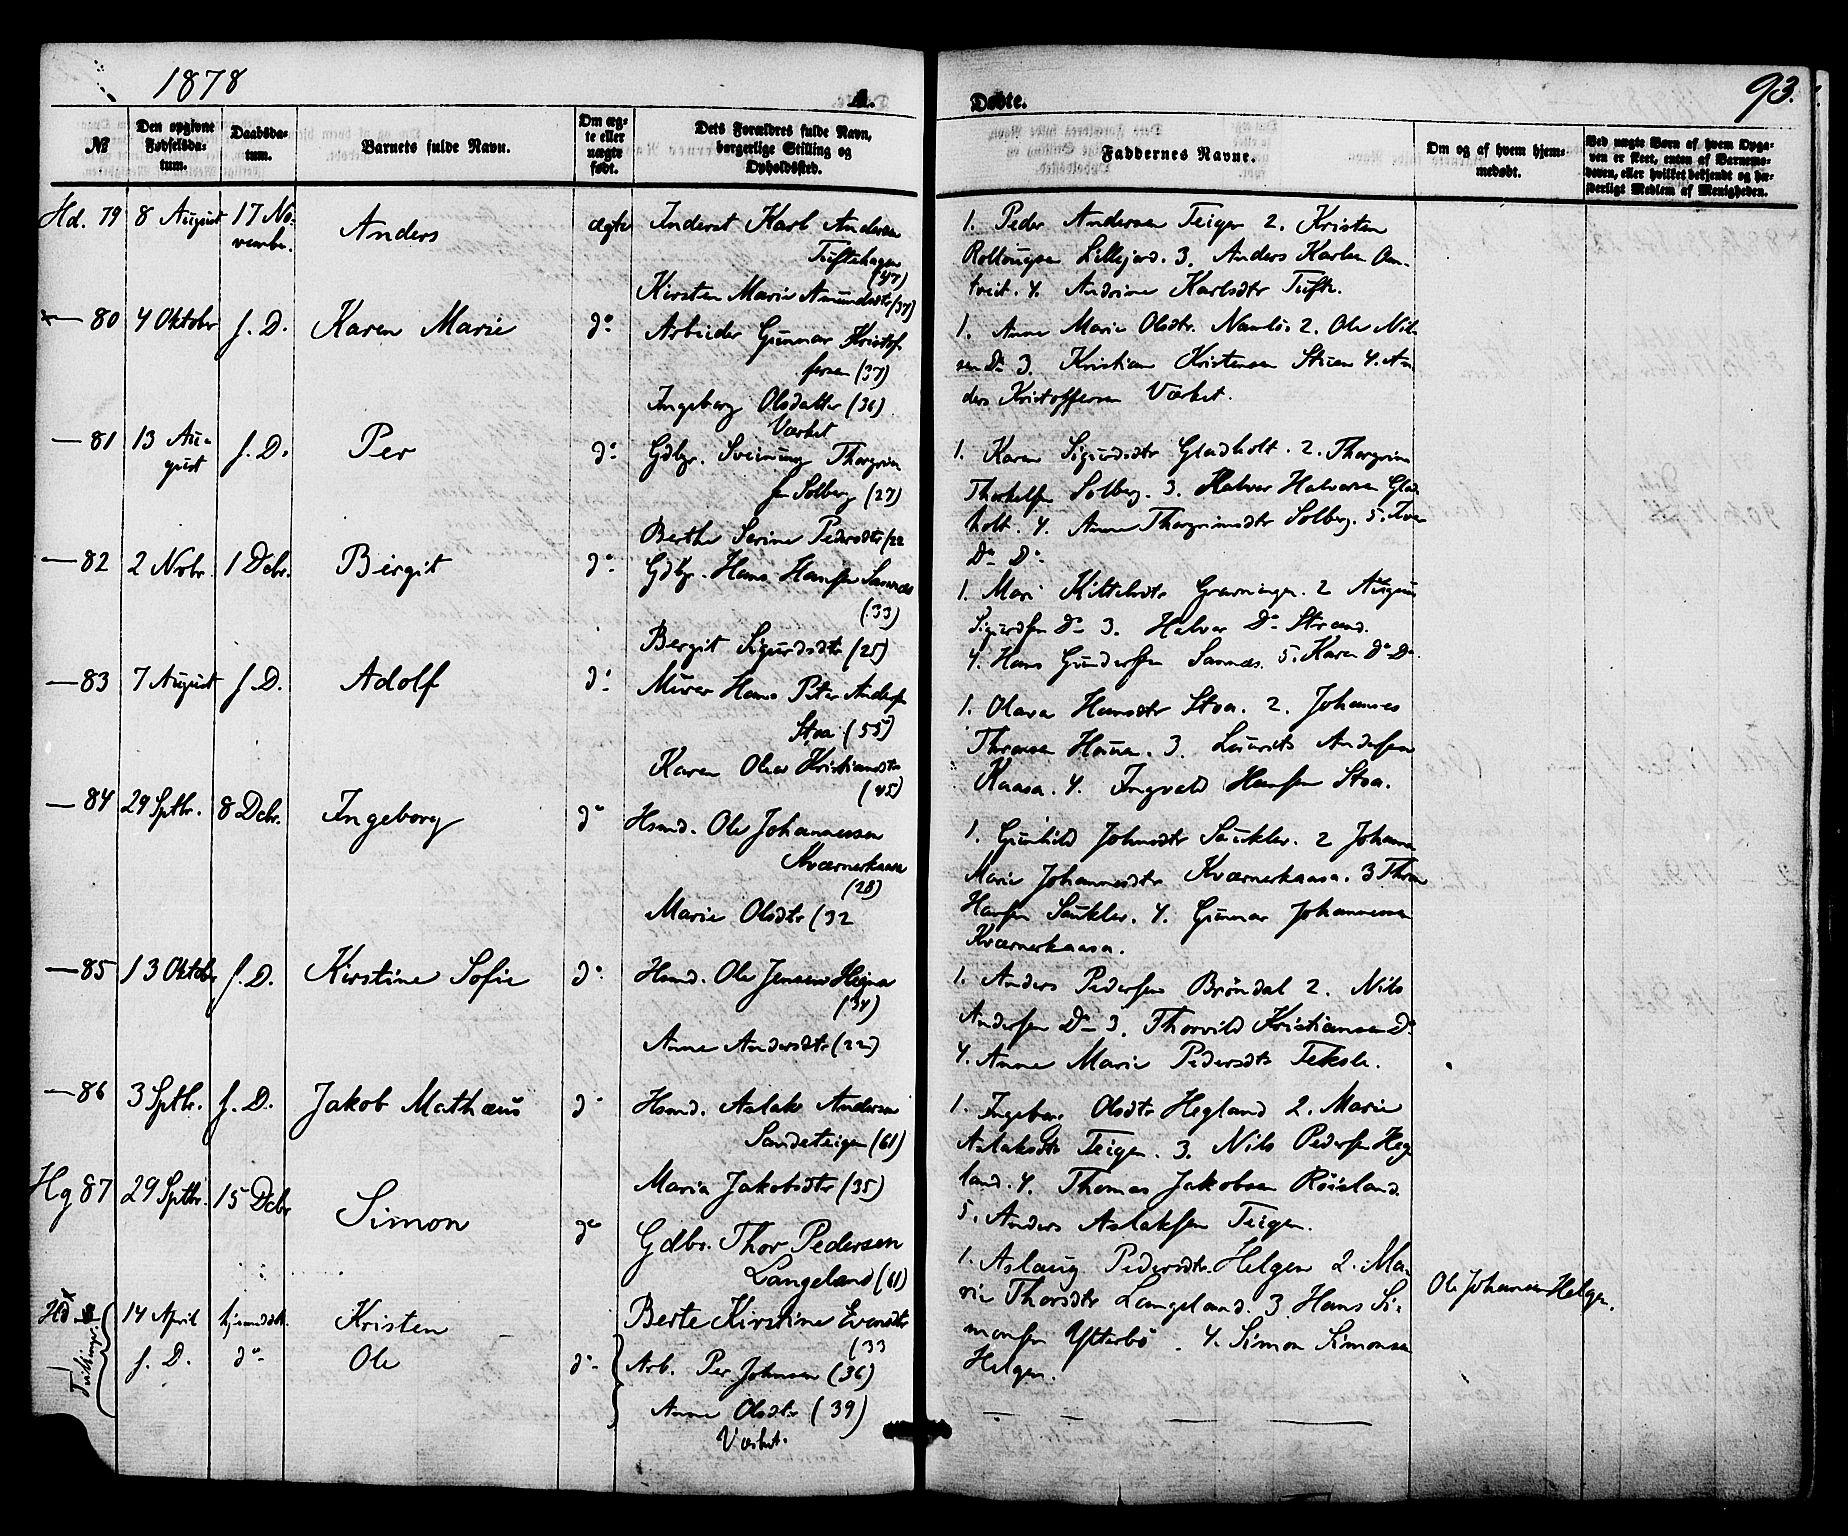 1878
A.
Døbte.
93.
№
Den opgivne Fødselsdatum.
Daabsdatum.
Barnets fulde Navn.
Om ægte eller uægte født.
Dets Forældres fulde Navn, borgerlige Stilling og Opholdssted.
Faddernes Navne.
Om og af hvem hjemmedøbt.
Ved uægte Børn af hvem Opgaven er skeet, enten af Barnemoderen, eller hvilket bekjendt og hæderligt Medlem af Menigheden.
Hd. 79 8 August 17 November Anders ægte
Inderst Karl Andersen
Tuftehagen
(47)
Kirsten Marie Amundsdtr (37)
1. Peder Andersen Teigen 2. Kristen
Lillejord. 3. Anders Karlsen Om-
tveit. 4. Andrine Karlsdtr Tufte.
— 80 4 Oktober s. D. Karen Marie do
Arbeider Gunnar Kristof
fersen (37)
Ingeborg Olsdatter (36)
Værket
1. Anne Marie Olsdtr. Namløs 2. Ole Nil
sen Do 3. Kristian Kristensen Stuen 4. An
ders Kristoffersen Værket.
— 81 13 August s. D. Per do
Gdbr. Sveinung Thorgrim
sen Solberg (27)
Berthe Serine Pedersdtr (22
1. Karen Sigurdsdtr Gladholt. 2. Thorgrim
Thorkelsen Solberg. 3. Halvor Halvorsen Glad
holt. 4. Anne Thorgrimsdtr Solberg. 5. Iver
Do Do
— 82 2 Novbr. 1 Decbr. Birgit do
Gdbr. Hans Hansen Sannes
(33)
Bergit Sigurdsdtr (25)
1. Mari Kittelsdtr Gravningen. 2 August
Sigurdsen Do 3. Halvor Do Strand.
4. Hans Gundersen Sannes. 5. Karen Do Do
— 83 7 August s. D. Adolf do
Murer Hans Peter Andersen
Stoa (55)
Karen Olea Kristiansdtr
(45)
1. Olava Hansdtr Stoa. 2. Johannes
Thronsen Haua. 3. Laurits Andersen
Kaasa. 4. Ingvald Hansen Stoa.
— 84 29 Sptbr. 8 Dcbr. Ingeborg do
Hsmd. Ole Johannessen
Kværnerkaasa
(28)
Marie Olsdtr (32
1. Gunhild Johnsdtr Saukler. 2 Johanne
Marie Johannesdtr Kværnerkaasa. 3 Thron
Hansen Saukler. 4. Gunnar Johannessen
Kværnerkaasa.
— 85 13 Oktober s. D. Kirstine Sofie do
Hsmd. Ole Jensen Hegna
(34)
Anne Andersdtr (22)
1. Anders Pedersen Brøndal 2. Nils
Andersen Do 3. Thorvild Kristiansen Do
4. Anne Marie Pedersdtr Teksle.
— 86 3 Sptbr. s. D. Jakob Mathæus do
Hsmd. Aslak Andersen
Sandeteigen (61)
Maria Jakobsdtr (35)
1. Ingeborg Olsdtr Hegland 2. Marie
Aslaksdtr Teigen. 3. Nils Pedersen Heg
land. 4. Thomas Jakobsen Røisland.
5. Anders Aslaksen Teigen.
Hg 87 29 Sptbr. 15 Dcbr Simon do
Gdbr. Thor Pedersen
Langeland (61)
Berte Kirstine Evendtr
(33
1. Aslaug Pedersdtr. Helgen 2. Ma-
rie Thorsdtr Langeland. 3 Hans Si-
monsen Ytterbø. 4. Simon Simonsen
Helgen.
Ole Johansen Helgen.
Hd 14 April hjemmedøbt. Kristen
Tvillinger. s. D. do Ole do
Arb. Per Johnsen (36)
Anne Olsdtr (39)
Værket.